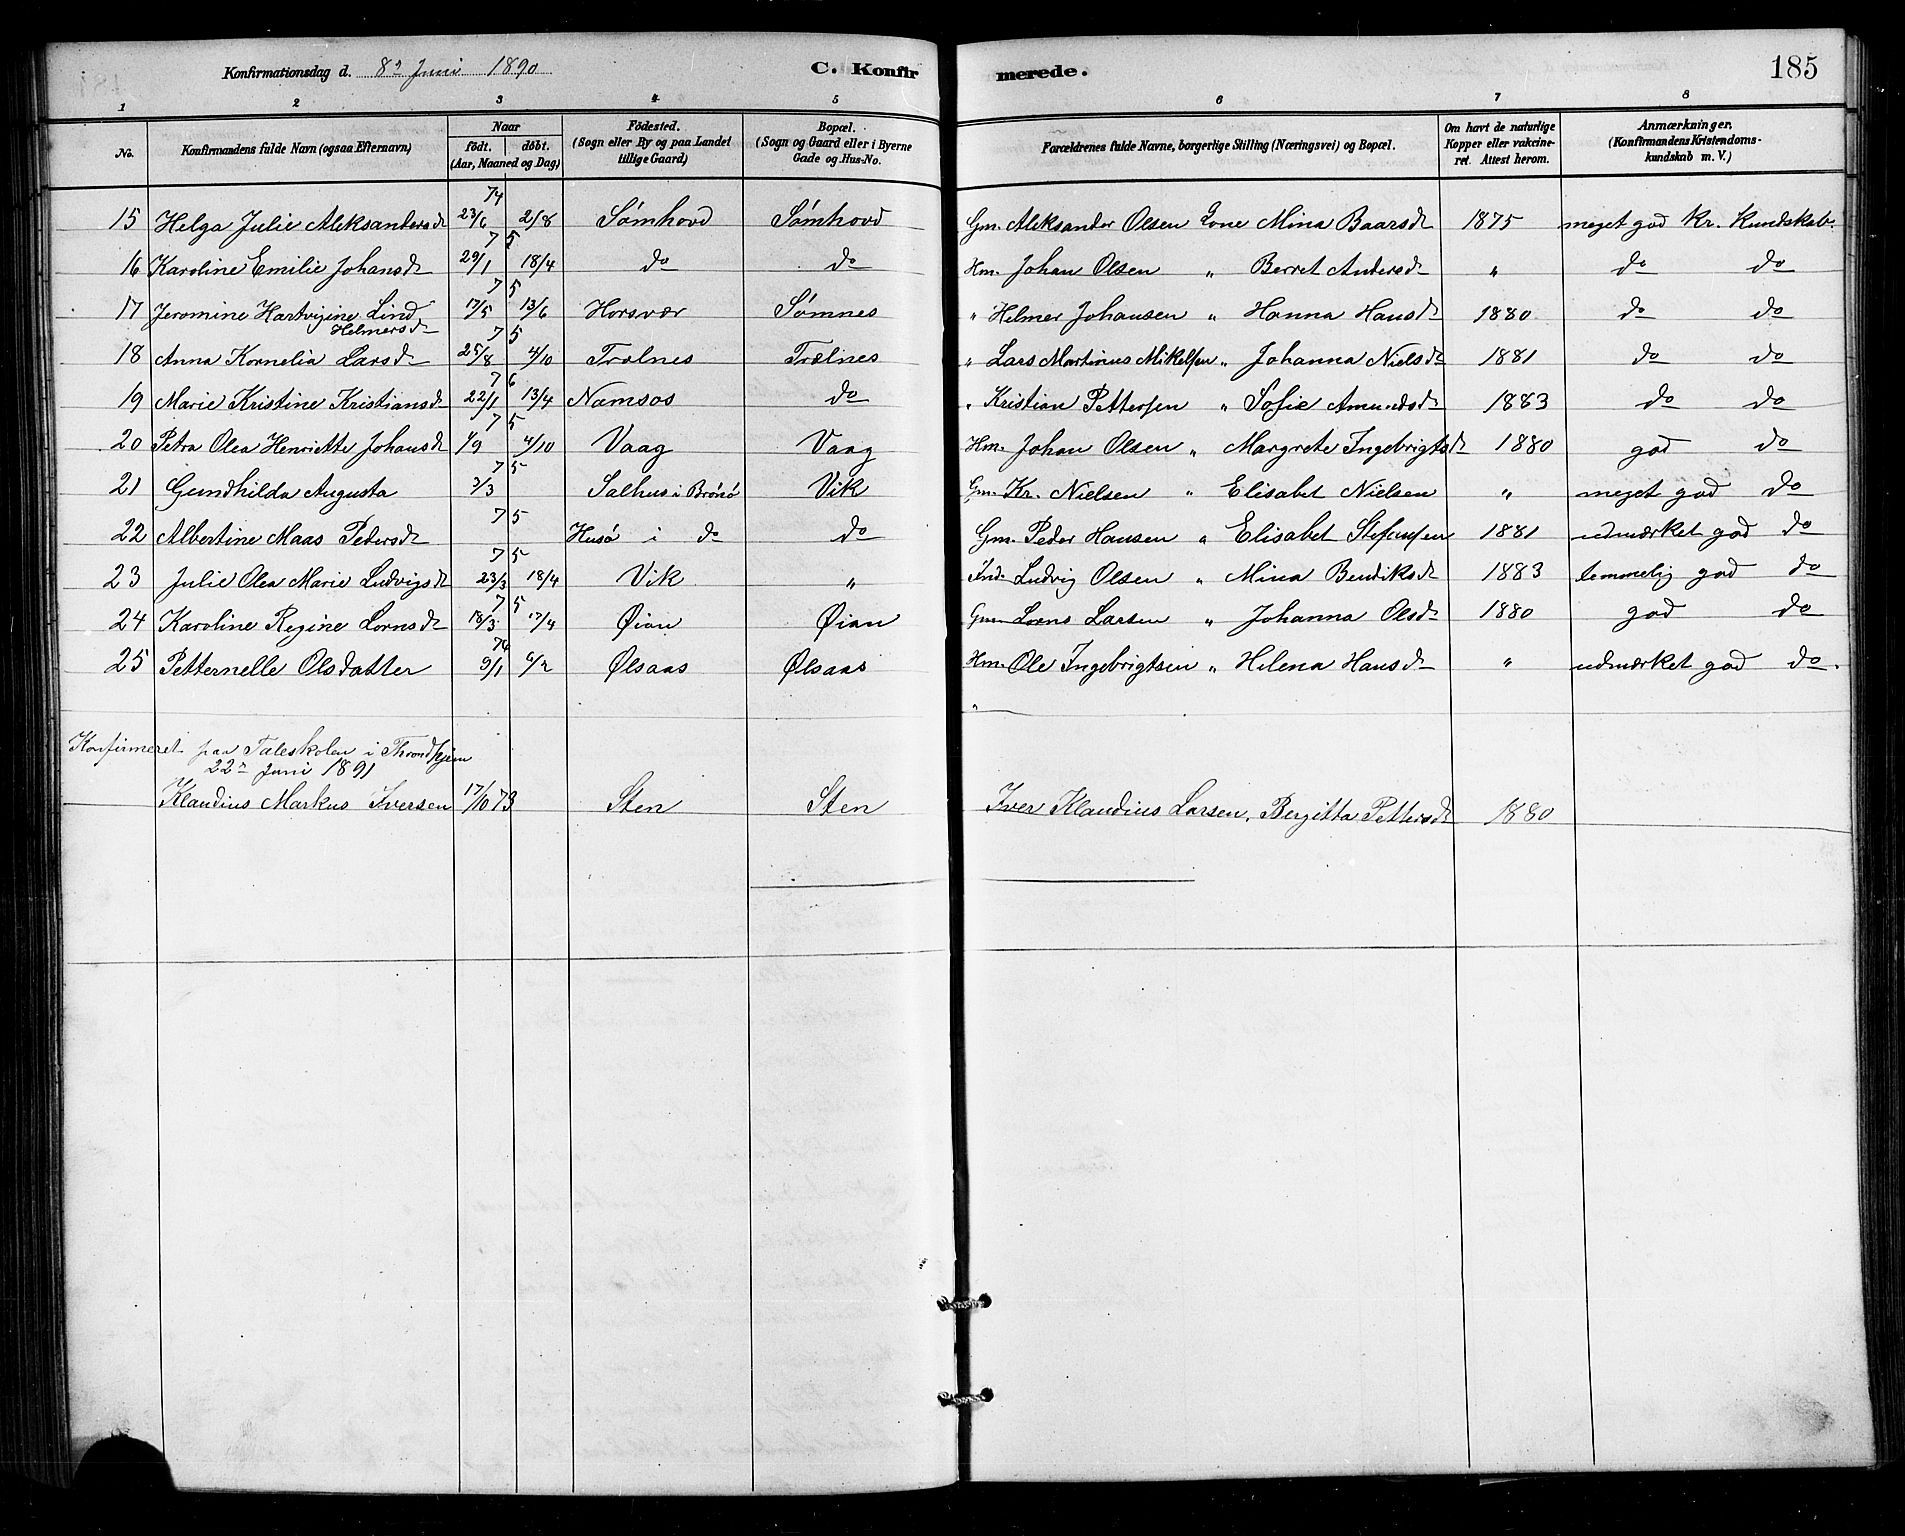 Konfirmationsdag d. 8de Juni 1890 C. Konfirmerede. 185
1 2 3 4 5 6 7 8
No. Konfirmandens fulde Navn (ogsaa Efternavn) Naar født. døbt. (Aar, Maaned og Dag) Fødested. (Sogn eller By og paa Landet tillige Gaard) Bopæl. (Sogn og Gaard eller i Byerne Gade og Hus-No. Forældrenes fulde Navne, borgerlige Stilling (Næringsvei) og Bopæl. Om havt de naturlige Kopper eller vakcineret. Attest herom. Anmærkninger. (Konfirmandens Kristendomskundskab m. V.)
74
15 Helga Julie Aleksandersd 23/6 2/8 Sømhovd Sømhovd Gm. Aleksander Olsen Kone Mina Baarsd 1875 meget god Kr. Kundskab.
75
16 Karoline Emilie Johansd 29/1 18/4 do do Hm. Johan Olsen " Berret Andersd " do do
75
17 Jeromine Hartvigine Lind Helmersd 17/5 13/6 Horsvær Sømnes " Helmer Johansen " Hanna Hansd 1880 do do
75
18 Anna Kornelia Larsd 25/8 4/10 Trælnes Trælnes " Lars Martinus Mikelsen " Johanna Nielsd 1881 do do
76
19 Marie Kristine Kristiansd 22/1 13/4 Namsos do " Kristian Pettersen " Sofie Amundsd 1883 do do
75
20 Petra Olea Henriette Johansd 1/9 4/10 Vaag Vaag Hm. Johan Olsen " Margrete Ingebrigtsd 1880 god do
75
21 Gundhilda Augusta 3/3 Salhus i Brønø Vik Gm. Kr. Nielsen " Elisabet Nielsen " meget god do
75
22 Albertine Maas Pedersd Husø i do do Gm. Peder Hansen " Elisabet Stefensen 1881 udmærket god do
75
23 Julie Olea Marie Ludvigsd 23/3 18/4 Vik " Ind. Ludvig Olsen " Mina Bendiksd 1883 temmelig god do
75
24 Karoline Regine Lornsd 18/3 17/4 Øian Øian Gm. Lorns Larsen " Johanna Olsd 1880 god do
74
25 Petternelle Olsdatter 9/1 6/2 Ølsaas Ølsaas Hm. Ole Ingebrigtsen " Helena Hansd " udmærket god do.
"
Konfirmeret paa Taleskolen i Throndhjem
22de Juni 1891
Klaudius Markus Iversen 17/10 73 Sten Sten Iver Klaudius Larsen, Bergitta Pettersd 1880